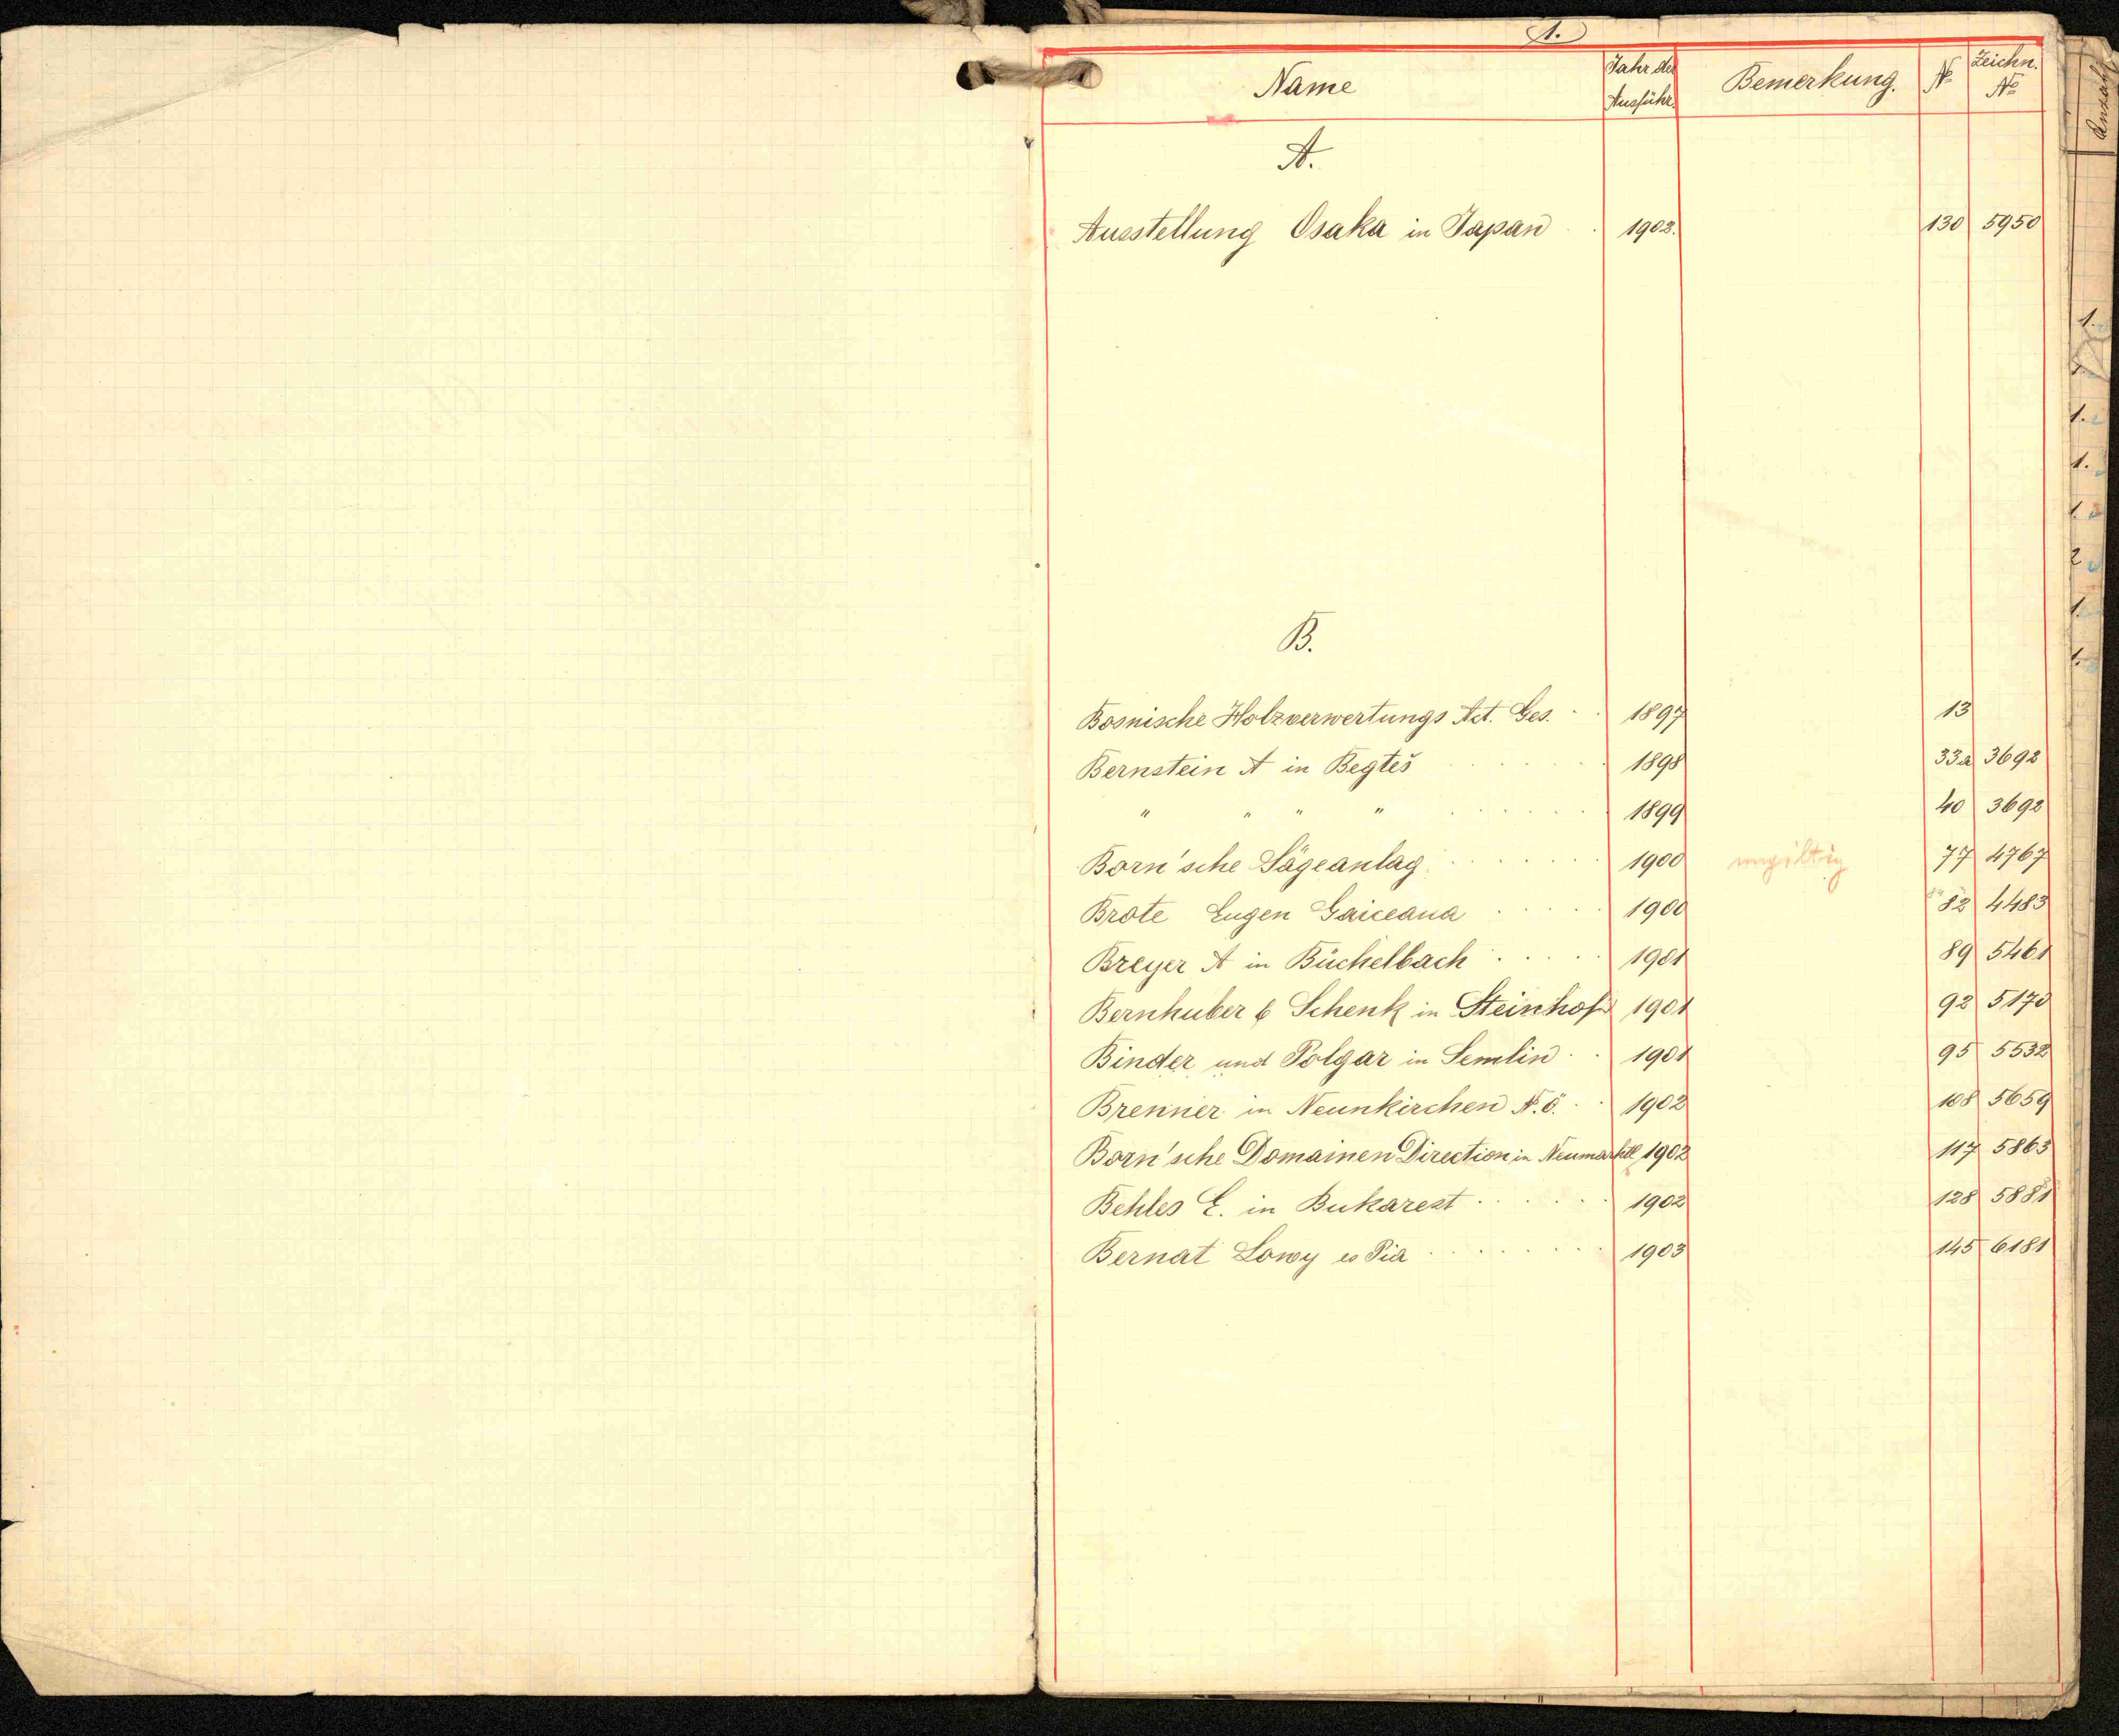 1.
Name Jahr der Ausführ. Bemerkung. № Zeichn. №
A.
Ausstellung Osaka in Japan 1903. 130 5950
B.
Bosnische Holzverwertungs Act. Ges. 1897 13
Bernstein A in Begteš 1898 33a 3692
" " " " 1899 40 3692
Born'sche Sägeanlag 1900 ungiltig 77 4767
Brote Eugen Gaiceana 1900 82 4483
Breyer A in Büchelbach 1901 89 5461
Bernhuber & Schenk in Steinhof 1901 92 5170
Binder und Polgar in Semlin 1901 95 5532
Brenner in Neunkirchen N.Ö. 1902 108 5659
Born'sche Domainen Direction in Neumarktl 1902 117 5863
Behles E. in Bukarest 1902 128 5881
Bernat Lowy es Pia 1903 145 6181
Anzahl
1.
1.
1.
1.
2.
1.
1.